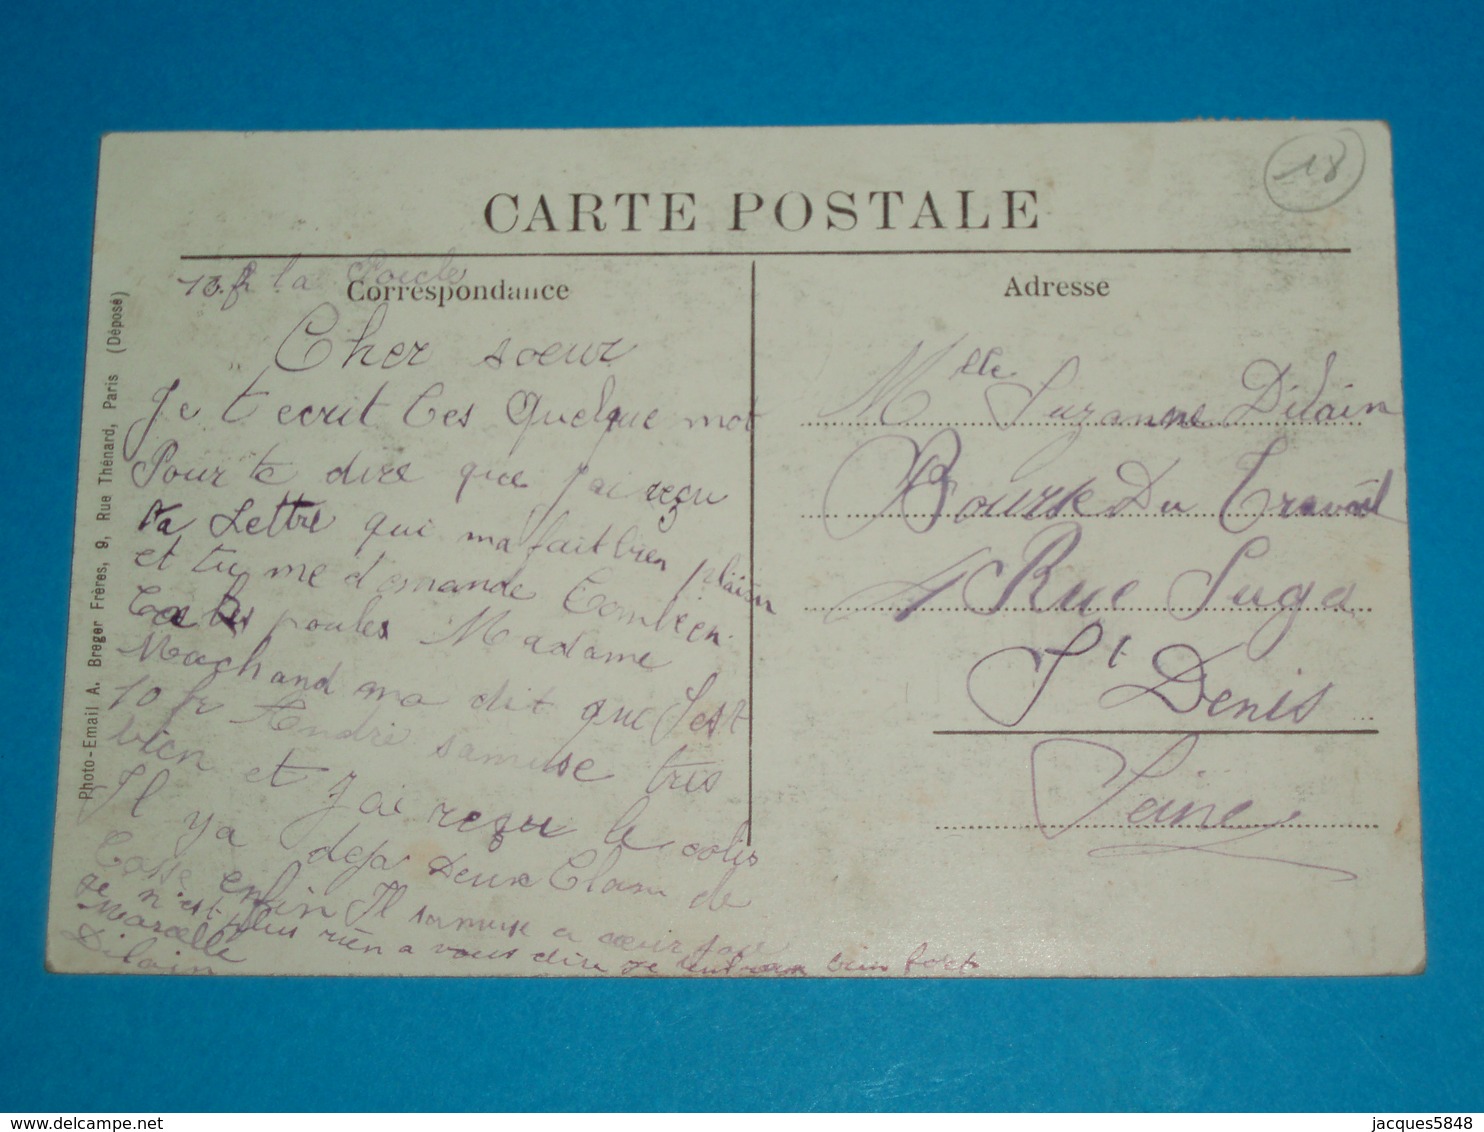 18
CARTE POSTALE
10 fr la
Correspondance
Cher soeur
Je t ecrit Ces Quelque mot
Pour te dire que j'ai reçu
ta Lettre qui ma fait bien plaisir
et tu me demande Combien
les poules Madame
Machand ma dit que S'est
10 fr André samuse tres
bien et J'ai reçu le colis
Il ya deja Deux Clam de
Casse enfin Il samuse a coeur
Je n'est plus rien a vous dire Je bien fort
Marcelle
Dilain
Photo-Email A. Breger Frères, 9, Rue Thénard, Paris (Déposé)
Adresse
Mlle Suzanne Dilain
Bourse Du Travail
4 Rue Suger
St Denis
Seine
jacques5848